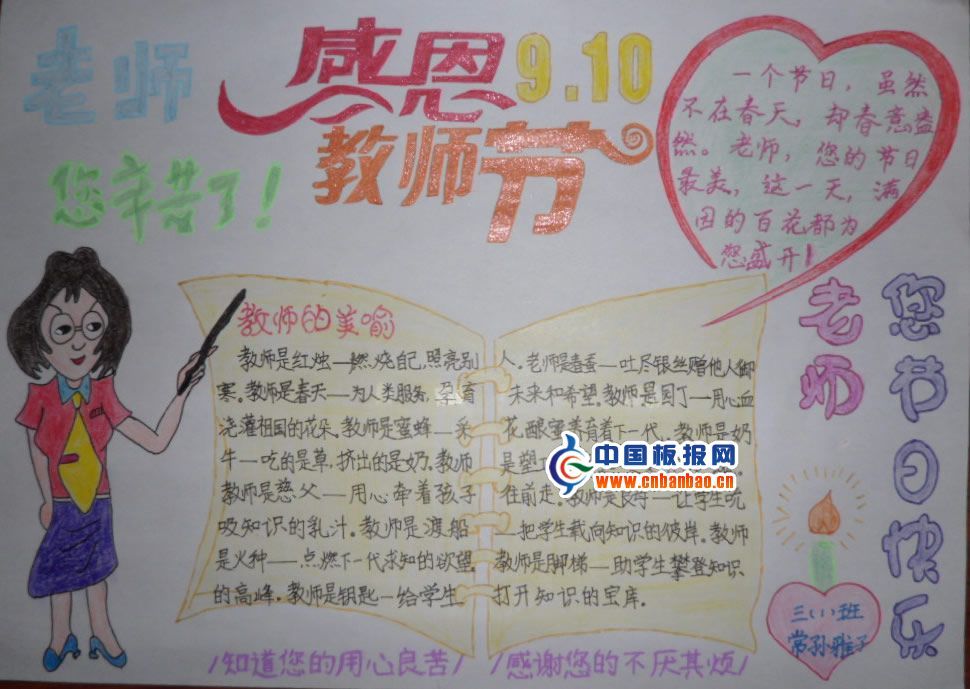 老师
您辛苦了!
感恩
9.10
教师节
一个节日,虽然
不在春天,却春意盎
然。老师,您的节日
最美,这一天,满
园的百花都为
您盛开!
教师的美喻
教师是红烛——燃烧自己,照亮别
寒。教师是春天——为人类服务,孕育
浇灌祖国的花朵。教师是蜜蜂——采
牛——吃的是草,挤出的是奶。教师
教师是慈父——用心牵着孩子
吸知识的乳汁。教师是渡船
是火种——点燃下一代求知的欲望
的高峰。教师是钥匙——给学生
人。老师是春蚕——吐尽银丝赠他人御
未来和希望。教师是园丁——用心血
花酿蜜养育着下一代。教师是奶
是塑
往前走。教师是良 让学生吮
——把学生载向知识的彼岸。教师
教师是脚梯——助学生攀登知识
打开知识的宝库。
中国板报网
www.cnbanbao.cn
老师
您节日快乐
三(1)班
常孙雅子
/知道您的用心良苦/
/感谢您的不厌其烦/